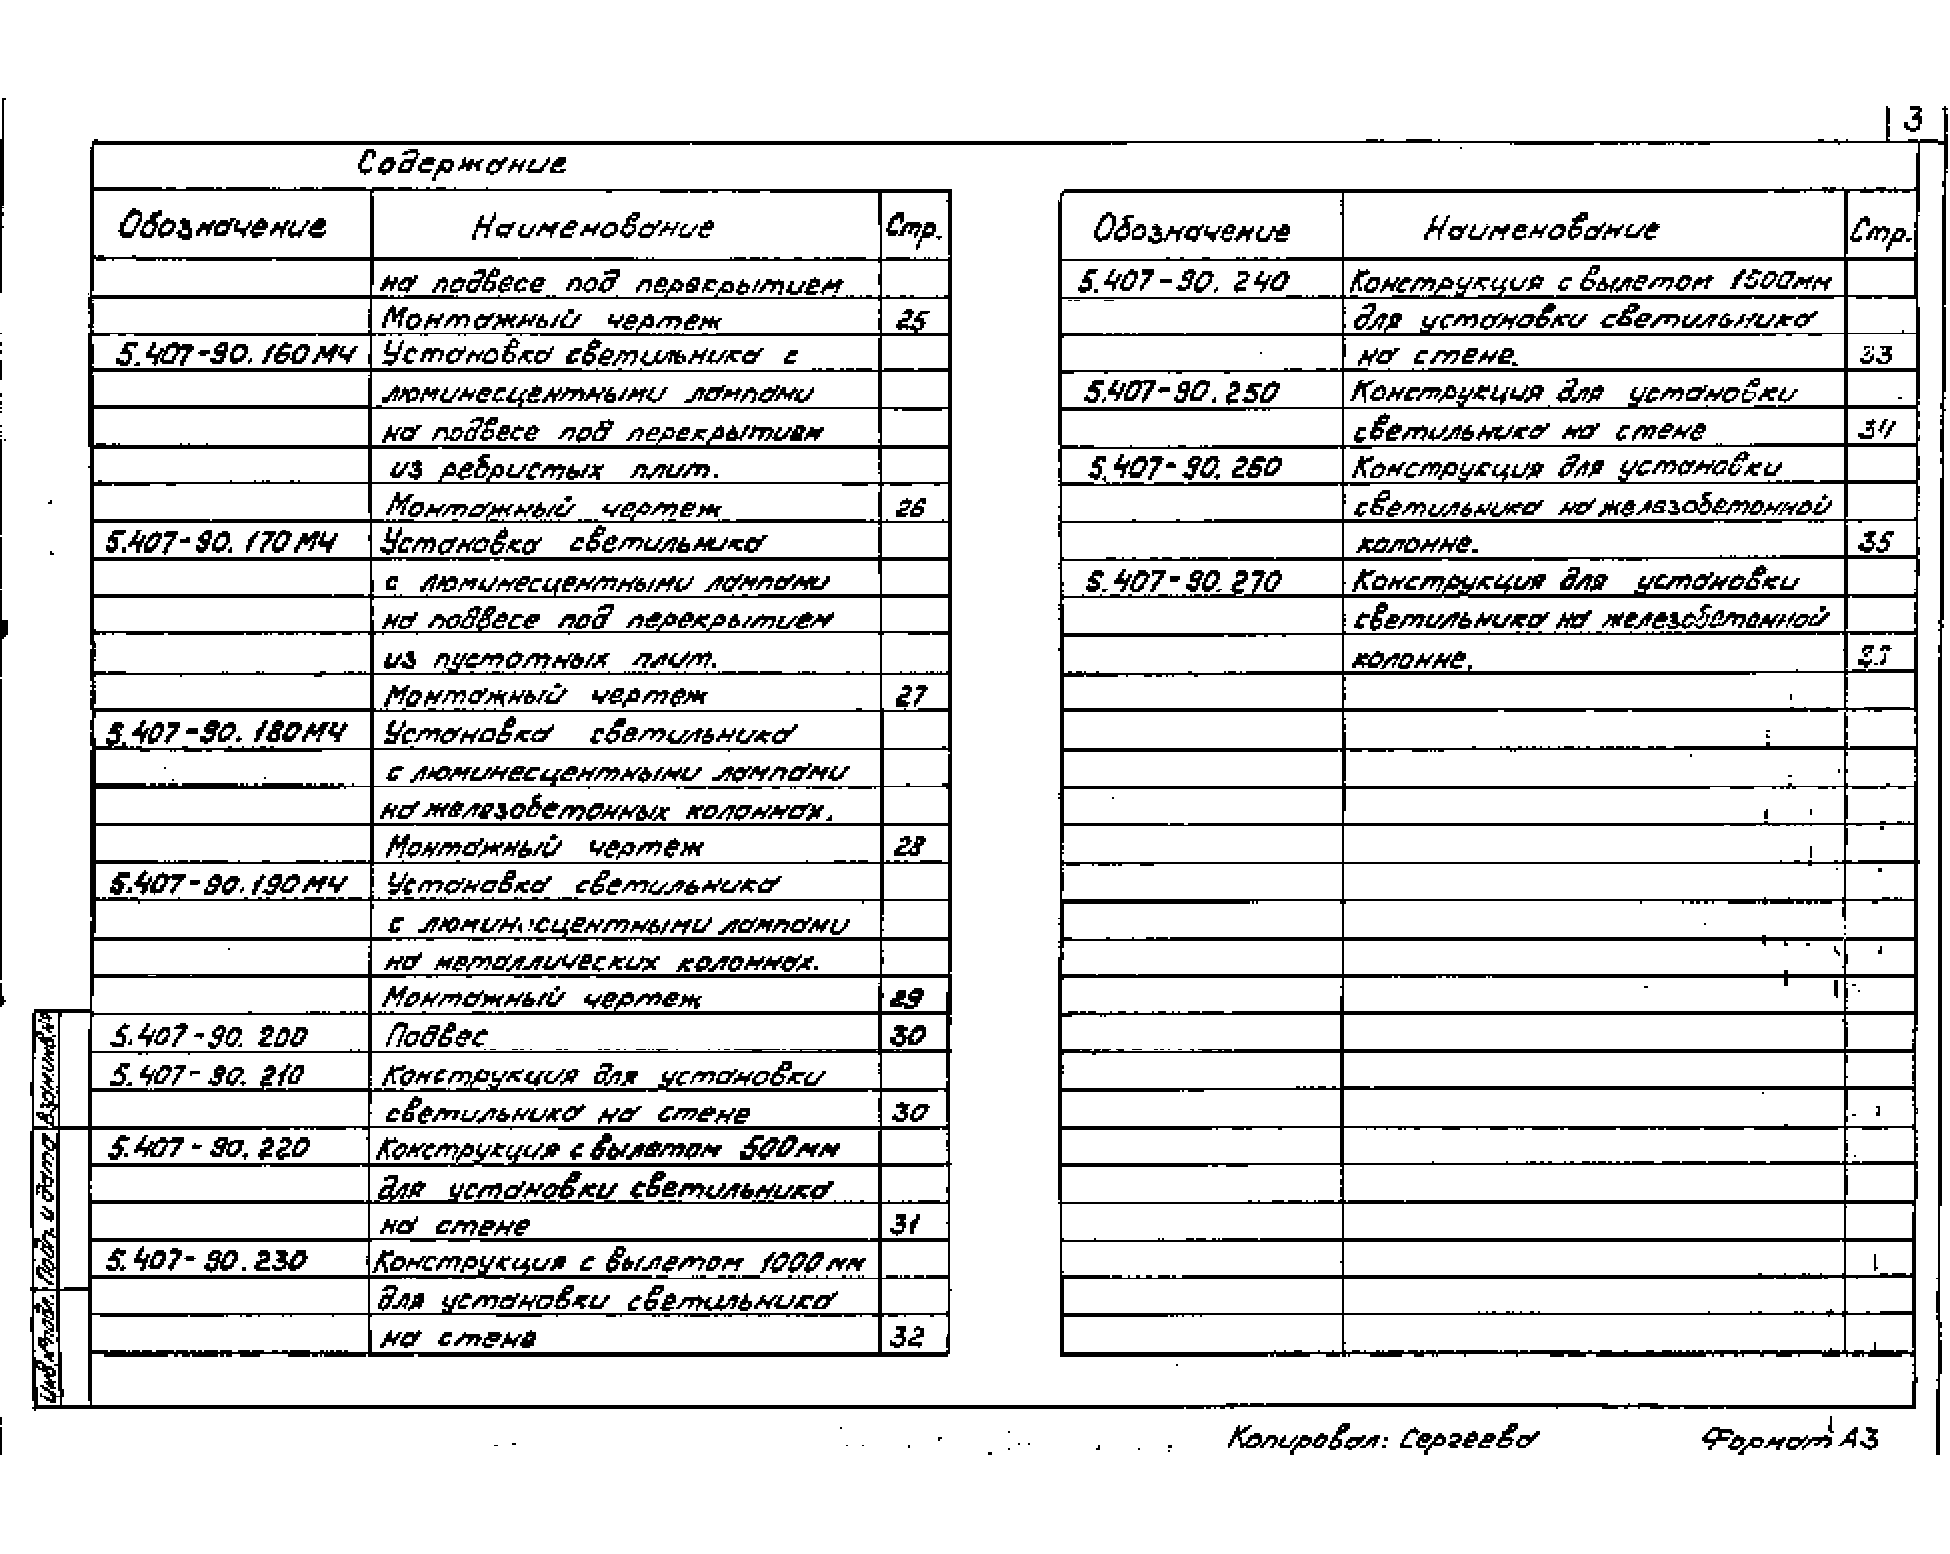 3
Содержание
Обозначение Наименование Стр.
на подвесе под перекрытием
Монтажный чертеж 25
5.407-90.160МЧ Установка светильника с
люминесцентными лампами
на подвесе под перекрытием
из ребристых плит.
Монтажный чертеж 26
5.407-90.170МЧ Установка светильника
с люминесцентными лампами
на подвесе под перекрытием
из пустотных плит.
Монтажный чертеж 27
5.407-90.180МЧ Установка светильника
с люминесцентными лампами
на железобетонных колоннах.
Монтажный чертеж 28
5.407-90.190МЧ Установка светильника
с люминесцентными лампами
на металлических колоннах.
Монтажный чертеж 29
5.407-90.200 Подвес 30
5.407-90.210 Конструкция для установки
светильника на стене 30
5.407-90.220 Конструкция с вылетом 500мм
для установки светильника
на стене 31
5.407-90.230 Конструкция с вылетом 1000мм
для установки светильника
на стене 32
Обозначение Наименование Стр.
5.407-90.240 Конструкция с вылетом 1500мм
для установки светильника
на стене. 33
5.407-90.250 Конструкция для установки
светильника на стене 34
5.407-90.260 Конструкция для установки
светильника на железобетонной
колонне. 35
5.407-90.270 Конструкция для установки
светильника на железобетонной
колонне.
Взам.инв.№
Подп. и дата
Инв.№подл.
Копировал: Сергеева Формат А3